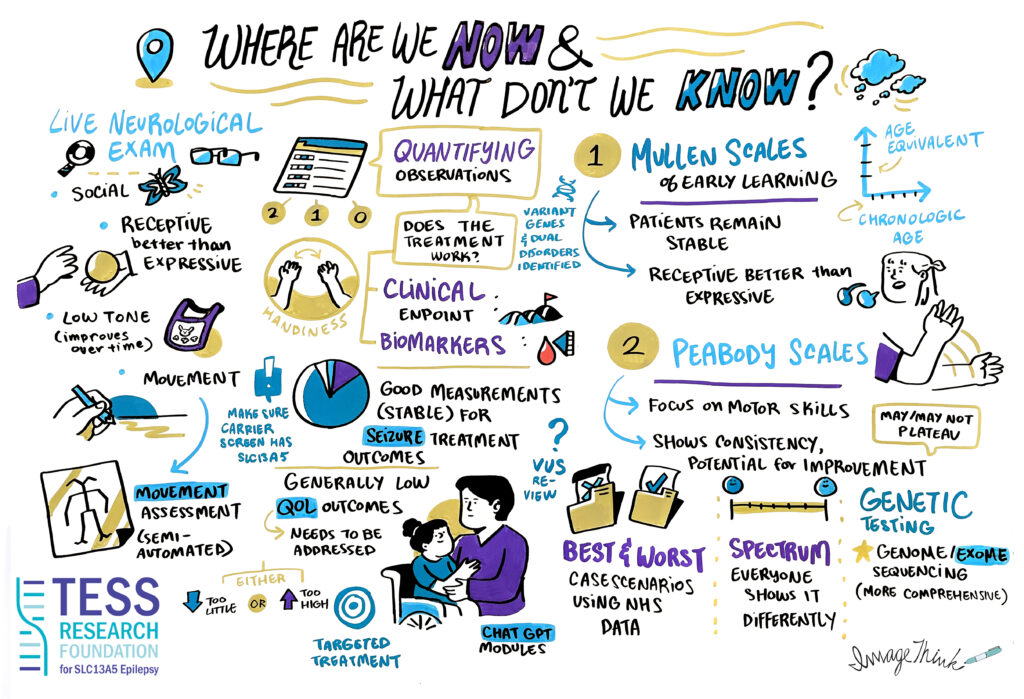 WHERE ARE WE NOW &
WHAT DON'T WE KNOW?
LIVE NEUROLOGICAL
EXAM
• SOCIAL
• RECEPTIVE
better than
EXPRESSIVE
• LOW TONE
(improves
over time)
• MOVEMENT
MOVEMENT
ASSESSMENT
(SEMI-
AUTOMATED)
2 1 0
QUANTIFYING
OBSERVATIONS
DOES THE
TREATMENT
WORK?
CLINICAL
ENPOINT
BIOMARKERS
HANDINESS
MAKE SURE
CARRIER
SCREEN HAS
SLC13A5
GOOD MEASUREMENTS
(STABLE) FOR
SEIZURE TREATMENT
OUTCOMES
GENERALLY LOW
QOL OUTCOMES
NEEDS TO BE
ADDRESSED
EITHER
TOO
LITTLE
OR
TOO
HIGH
TARGETED
TREATMENT
CHAT GPT
MODULES
VARIANT
GENES
& DUAL
DISORDERS
IDENTIFIED
1 MULLEN SCALES
of EARLY LEARNING
PATIENTS REMAIN
STABLE
RECEPTIVE BETTER than
EXPRESSIVE
AGE
EQUIVALENT
CHRONOLOGIC
AGE
2 PEABODY SCALES
FOCUS ON MOTOR SKILLS
SHOWS CONSISTENCY,
POTENTIAL FOR IMPROVEMENT
MAY/MAY NOT
PLATEAU
?
VUS
RE-
VIEW
BEST & WORST
CASE SCENARIOS
USING NHS
DATA
SPECTRUM
EVERYONE
SHOWS IT
DIFFERENTLY
GENETIC
TESTING
GENOME/EXOME
SEQUENCING
(MORE COMPREHENSIVE)
TESS
RESEARCH
FOUNDATION
for SLC13A5 Epilepsy
ImageThink